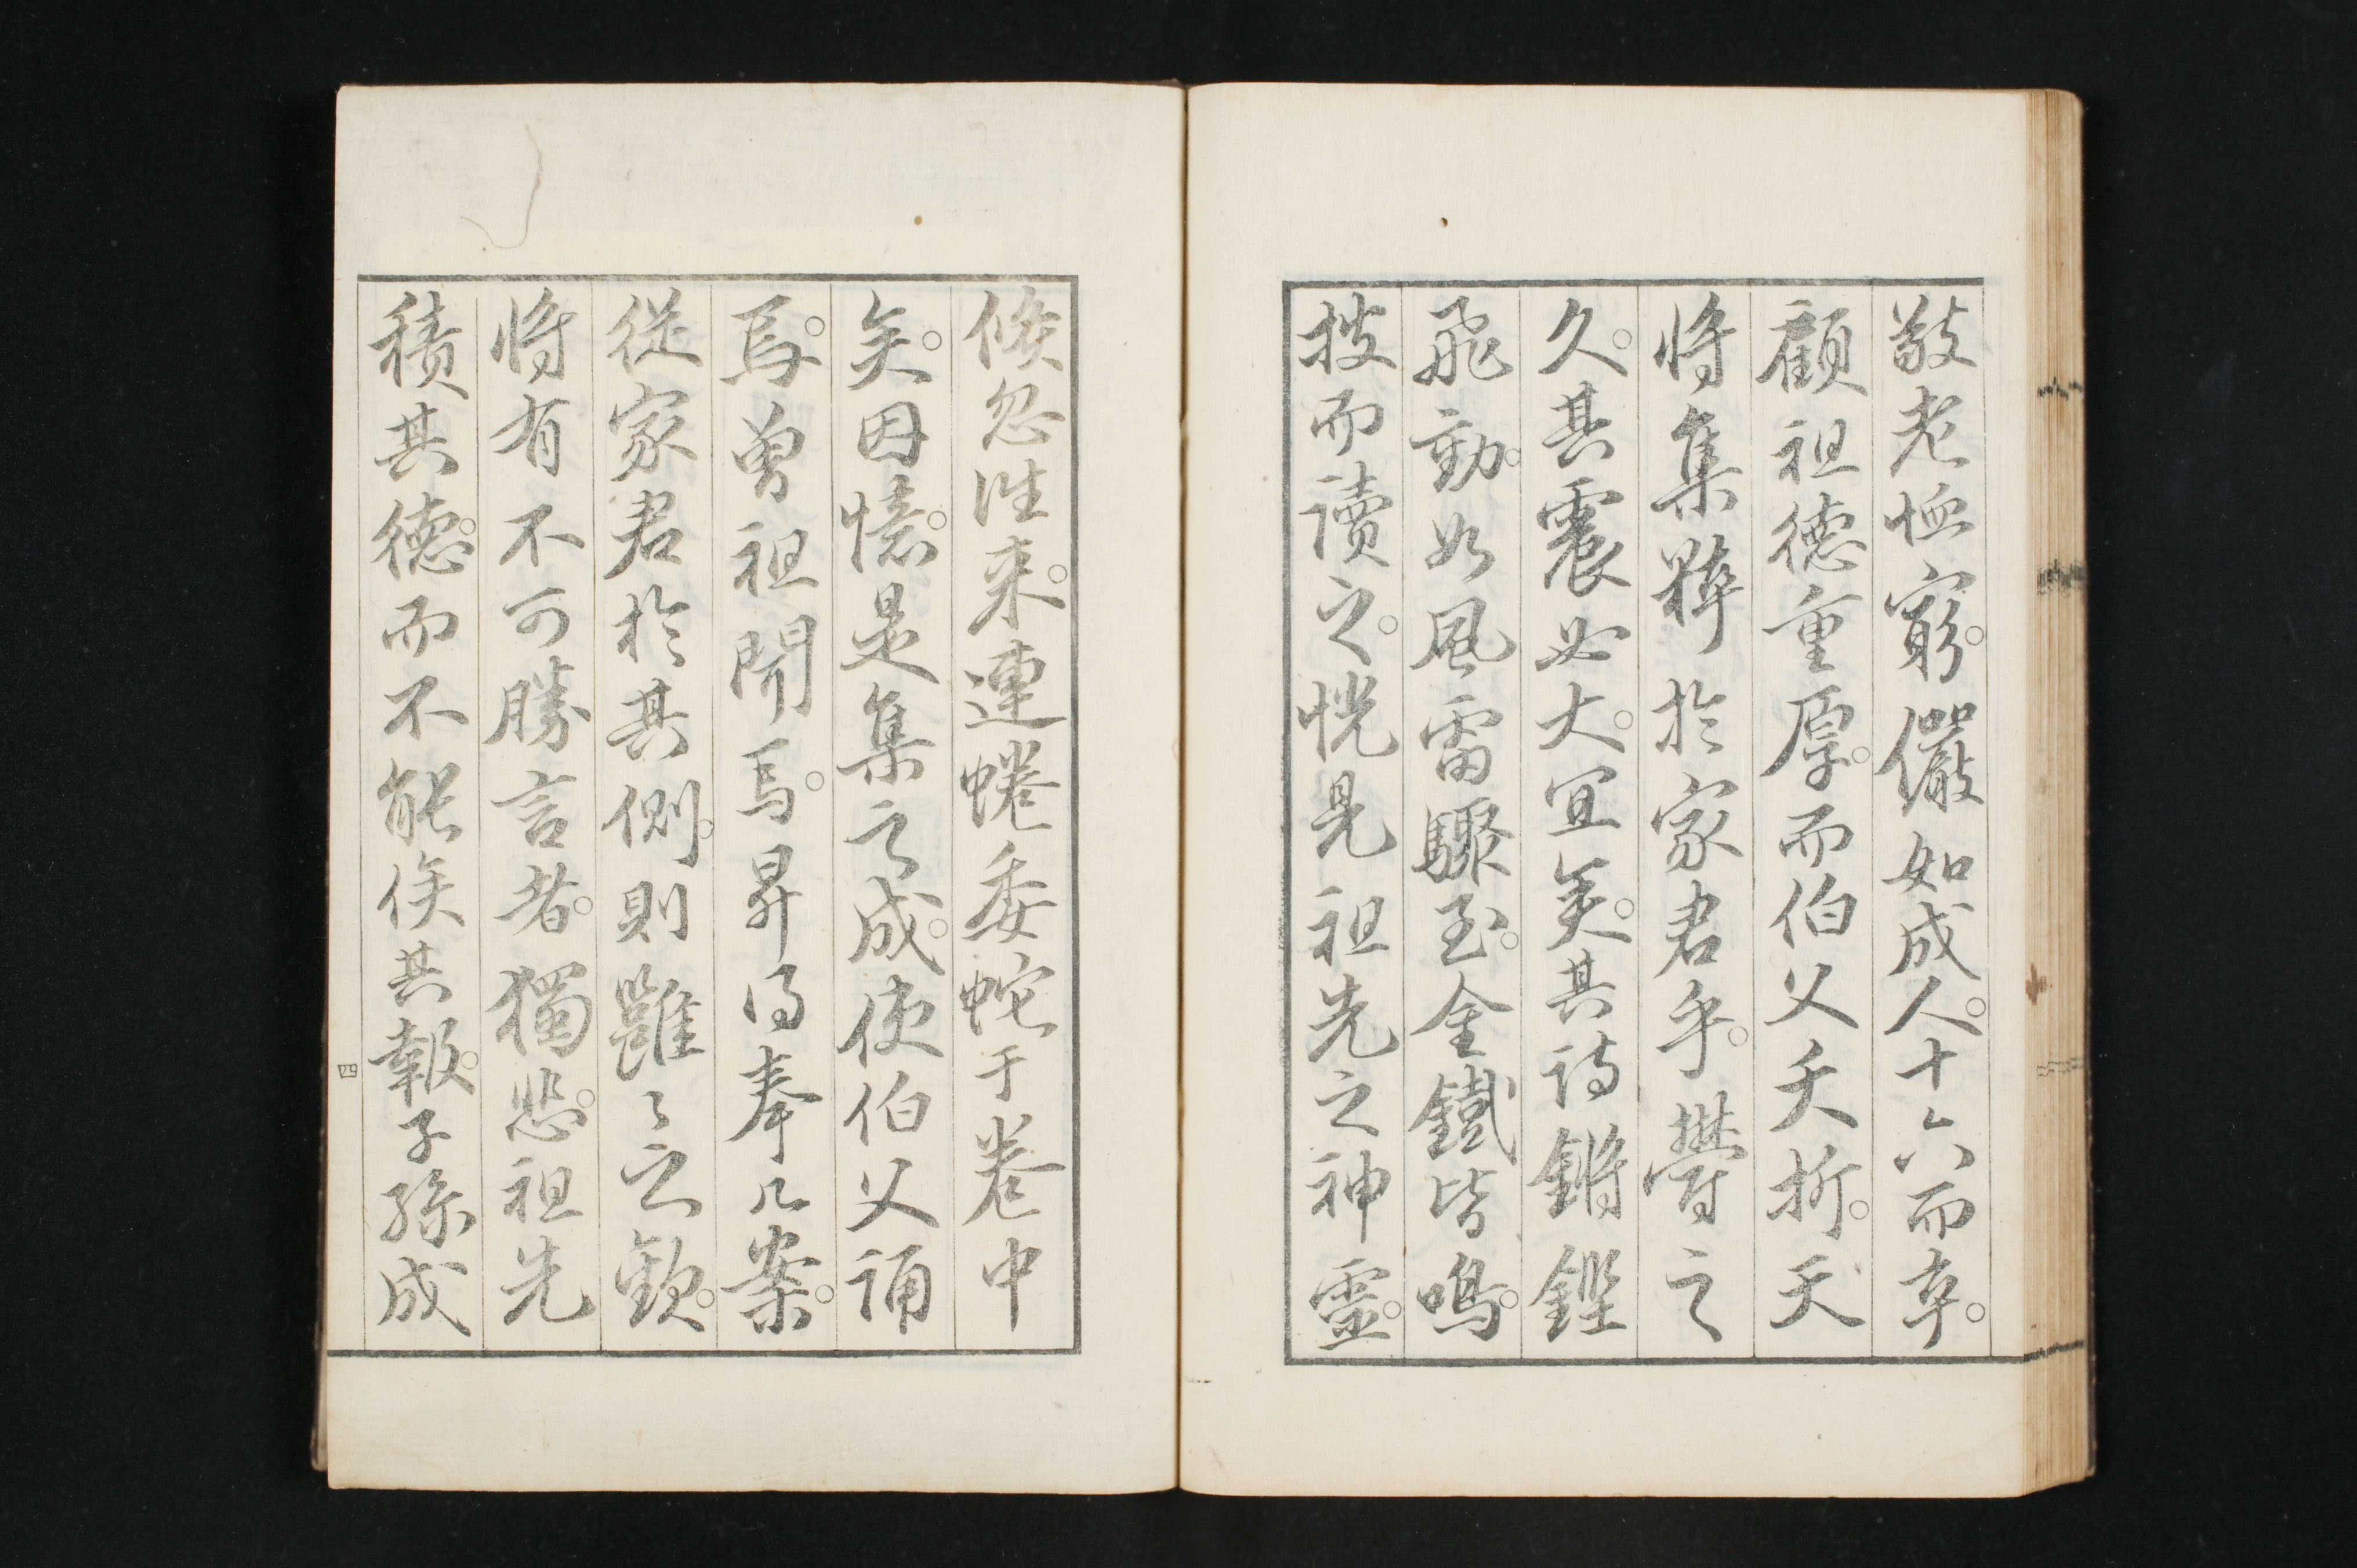 敬老恤窮。儼如成人。十六而卒。
顧祖德重厚。而伯父夭折。天
將集釋於家君乎。欝之
久。其震必大。宜矣。其詩鏘鏗
飛動。如風雷驟至。金鐵皆鳴。
披而讀之。恍見祖先之神靈。
倏忽往来。連蜷委蛇于卷中
矣。因憶。是集之成。使伯父誦
焉。曾祖聞焉。昇得奉几案。
從家君於其側。則雖々之歓。
將有不可勝言者。獨悲。祖先
積其德。而不能俟其報。子孫成
四